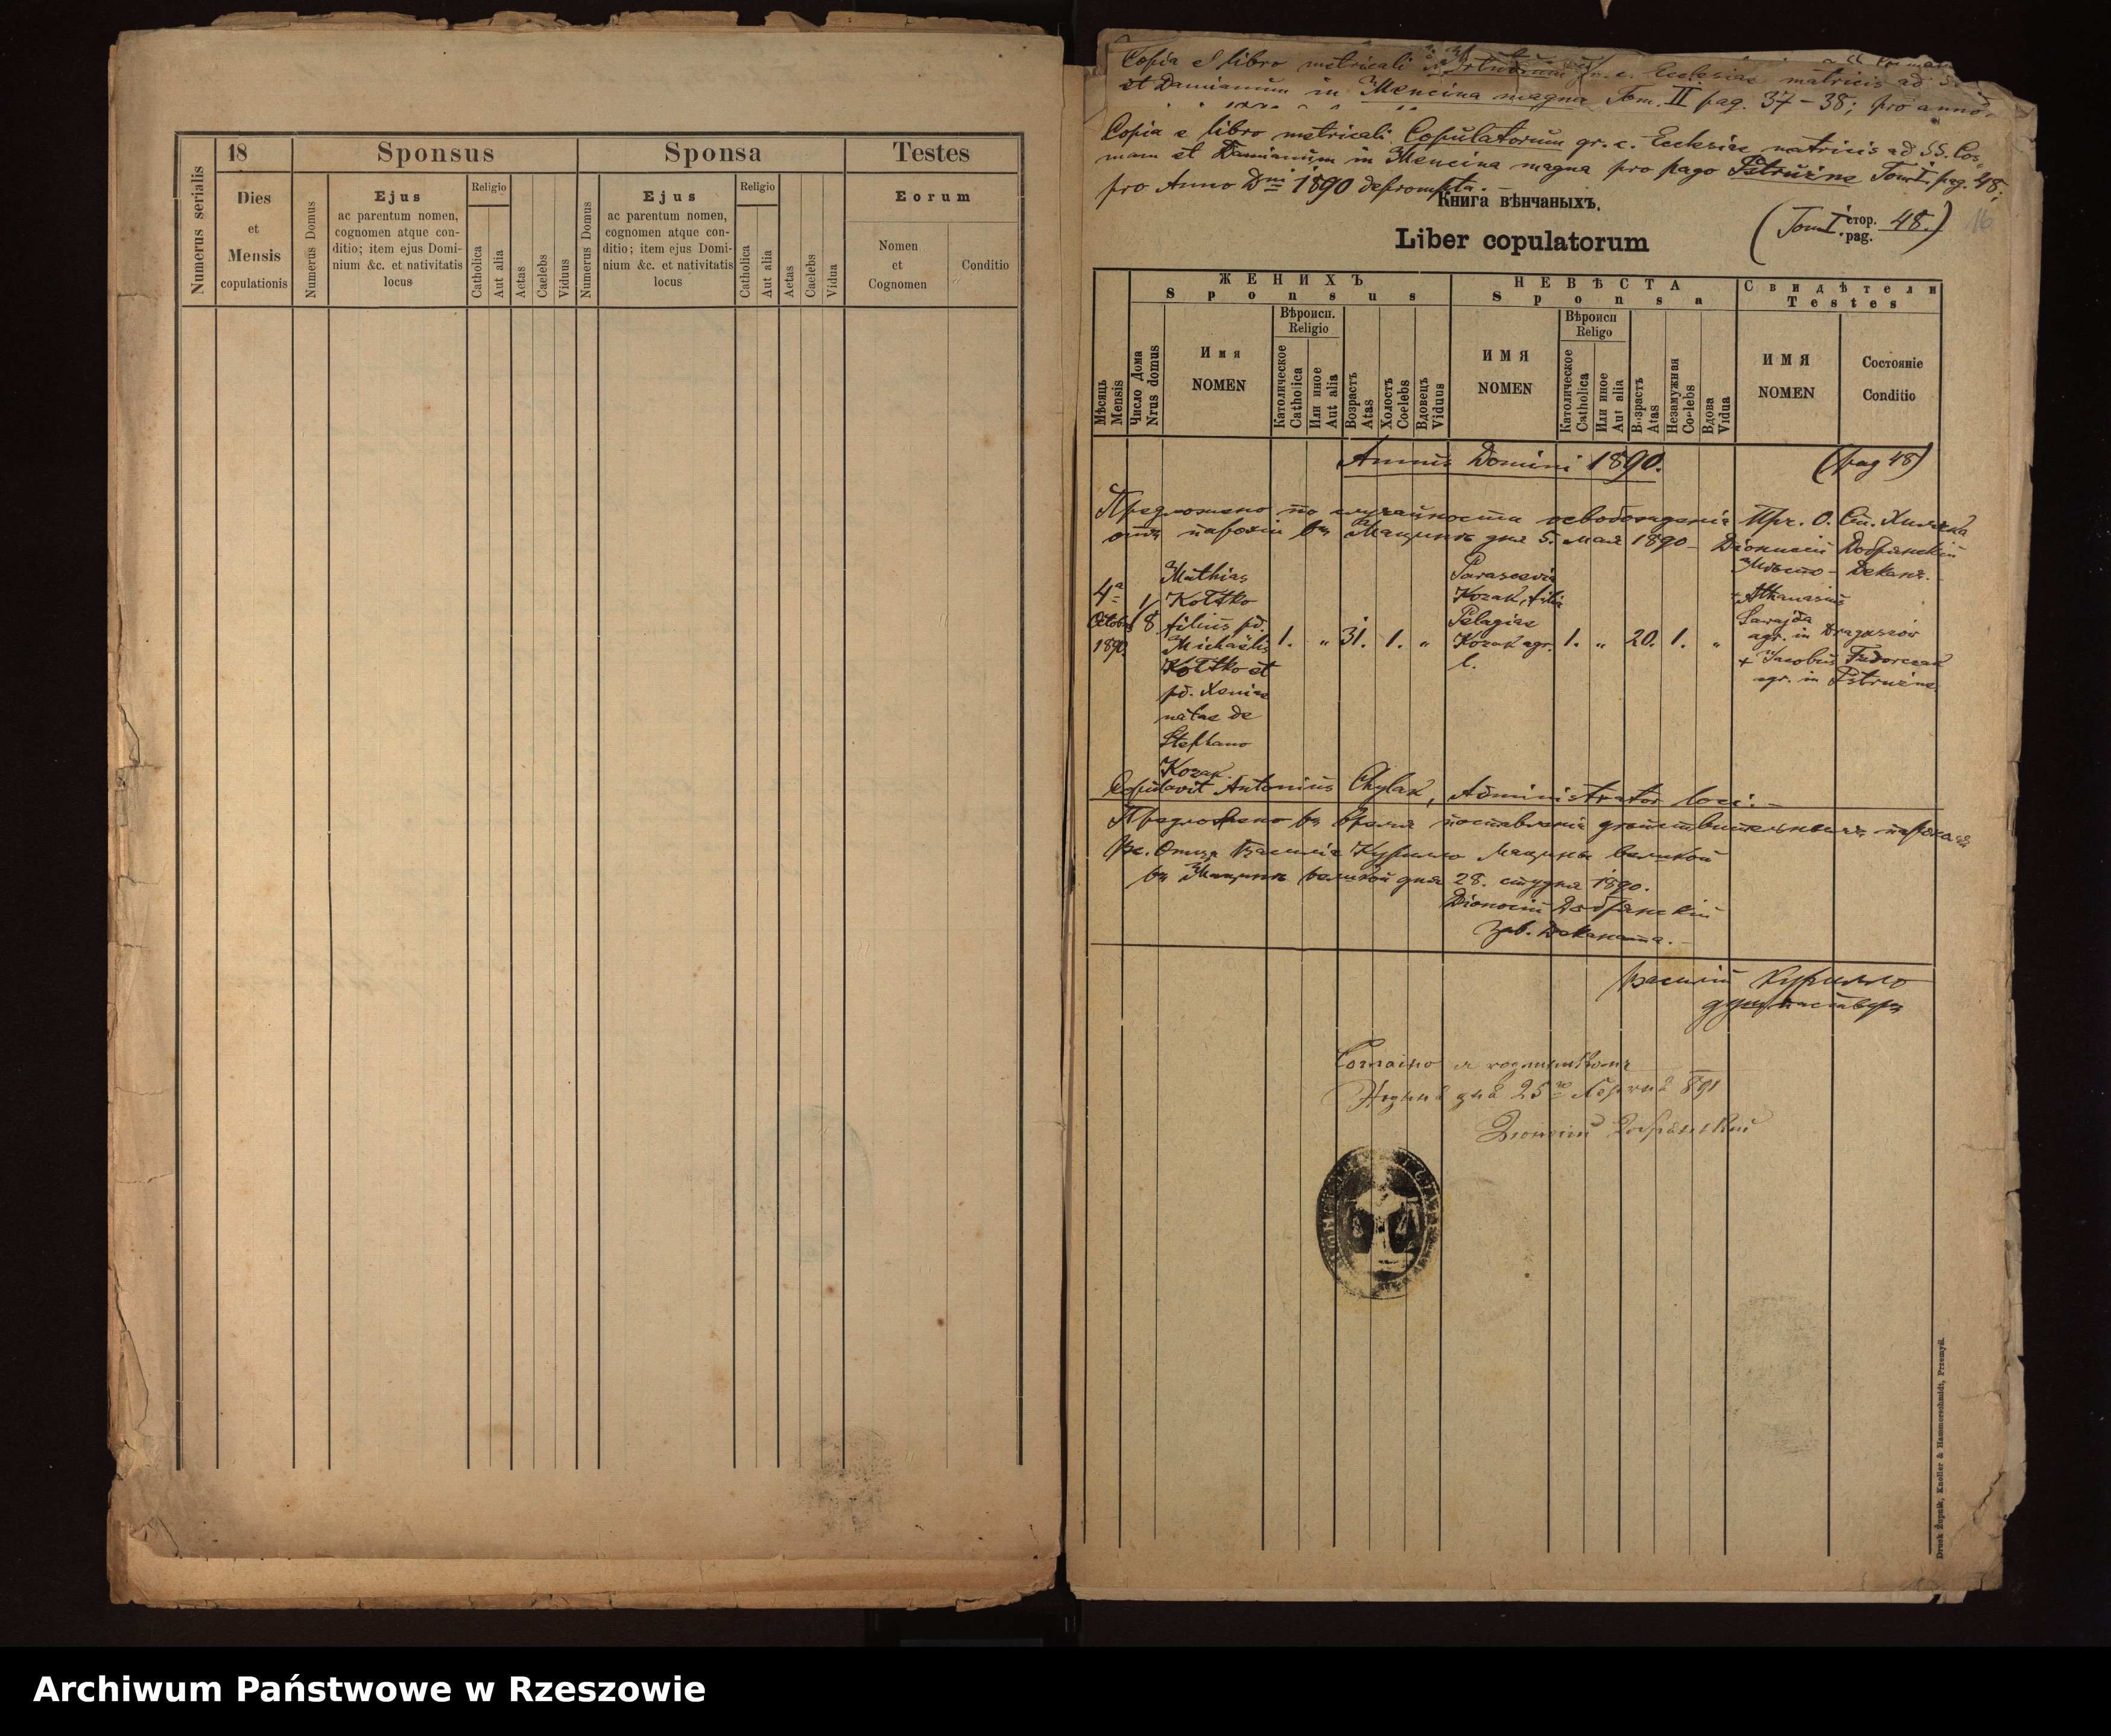 18
Sponsus
Sponsa
Testes
Numerus serialis
Dies
et
Mensis
copulationis
Numerus Domus
Ejus
ac parentum nomen,
cognomen atque con-
ditio; item ejus Domi-
nium &c. et nativitatis
locus
Religio
Catholica
Aut alia
Aetas
Caelebs
Viduus
Numerus Domus
Ejus
ac parentum nomen,
cognomen atque con-
ditio; item ejus Domi-
nium &c. et nativitatis
locus
Religio
Catholica
Aut alia
Aetas
Caelebs
Vidua
Eorum
Nomen
et
Cognomen
Conditio
Copia e libro metricali gr. c. Ecclesiae matricis ad
et Damianum in Mencina magna Tom. II pag. 37-38; pro anno
Copia e libro metricali Copulatorum gr. c. Ecclesiae matricis ad SS. Cos-
mam et Damianum in Mencina magna pro pago Pstruzne Tom I. pag. 48;
pro Anno Dni 1890 deprompta.
Книга вѣнчаныхъ.
Liber copulatorum
(Tom I. стор. pag. 48.)
16
ЖЕНИХЪ
Sponsus
НЕВѢСТА
Sponsa
Свидѣтели
Testes
Мѣсяць
Mensis
Число Дома
Nrus domus
Имя
NOMEN
Вѣроисп.
Religio
Католическое
Catholica
Или иное
Aut alia
Возрастъ
Atas
Холостъ
Coelebs
Вдовецъ
Viduus
ИМЯ
NOMEN
Вѣроисп
Religo
Католическое
Catholica
Или иное
Aut alia
Возрастъ
Atas
Незамужная
Coelebs
Вдова
Vidua
ИМЯ
NOMEN
Состояніе
Conditio
Annus Domini 1890.
(pag 48)
Предложено по освобожденія Пр. О. Хиляка
отъ парохіи въ Мацинѣ дня 5. Мая 1890 - Діонисій Добрянскій
Мѣсто - Деканъ.
4a
Octobris
1890.
1/
8
Mathias
Kottko
filius pd.
Michaëlis
Kottko et
pd. Xeniae
natae de
Stephano
Kozak.
1. „ 31. 1. „
Parascevia
Kozak, filia
Pelagiae
Kozak agr.
l.
1. „ 20. 1. „
+ Athanasius
Sawajda
agr. in Dragaszow
+ Jacobus Fedorczak
agr. in Pstruzne.
Copulavit Antonius Chylak, Administrator loci. -
Предложено въ время поставленія дѣйствительнымъ парохомъ
Вс. Отца Василія Курилло Мацины великой
въ Мацинѣ великой дня 28. студня 1890.
Діонисій Добрянскій
Зав. Деканата.
Василій Курилло
душпастырь
Согласно съ
дня 25го 891
Діонисій Добрянскій
Druck Żupnik, Knoller & Hammerschmidt, Przemyśl.
Archiwum Państwowe w Rzeszowie